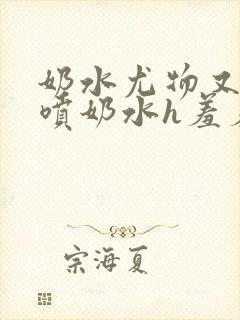 奶水尤物又
噴奶水h羞
宗海夏